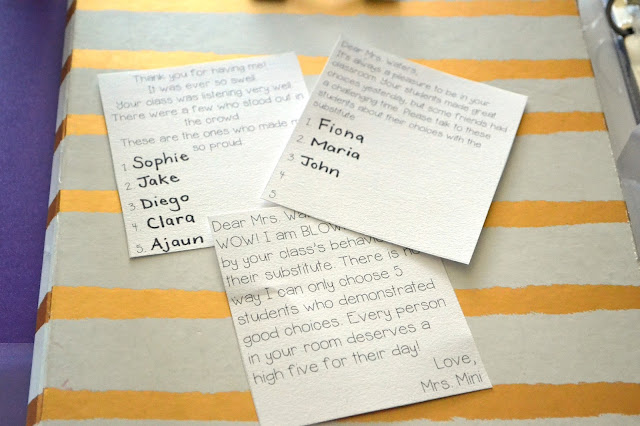 Thank you for having me!
It was ever so swell.
Your class was listening very well.
There were a few who stood out in
the crowd.
These are the ones who made m
so proud.
1. Sophie
2. Jake
3. Diego
4. Clara
5. Ajaun
Dear Mrs. Waters,
It's always a pleasure to be in your
classroom. Your students made great
choices yesterday, but some friends had
a challenging time. Please talk to these
students about their choices with the
substitute.
1. Fiona
2. Maria
3. John
4.
5.
Dear Mrs. Wa
WOW! I am BLOW
by your class's behavi
their substitute. There is no
way I can only choose 5
students who demonstrated
good choices. Every person
in your room deserves a
high five for their day!
Love,
Mrs. Mini